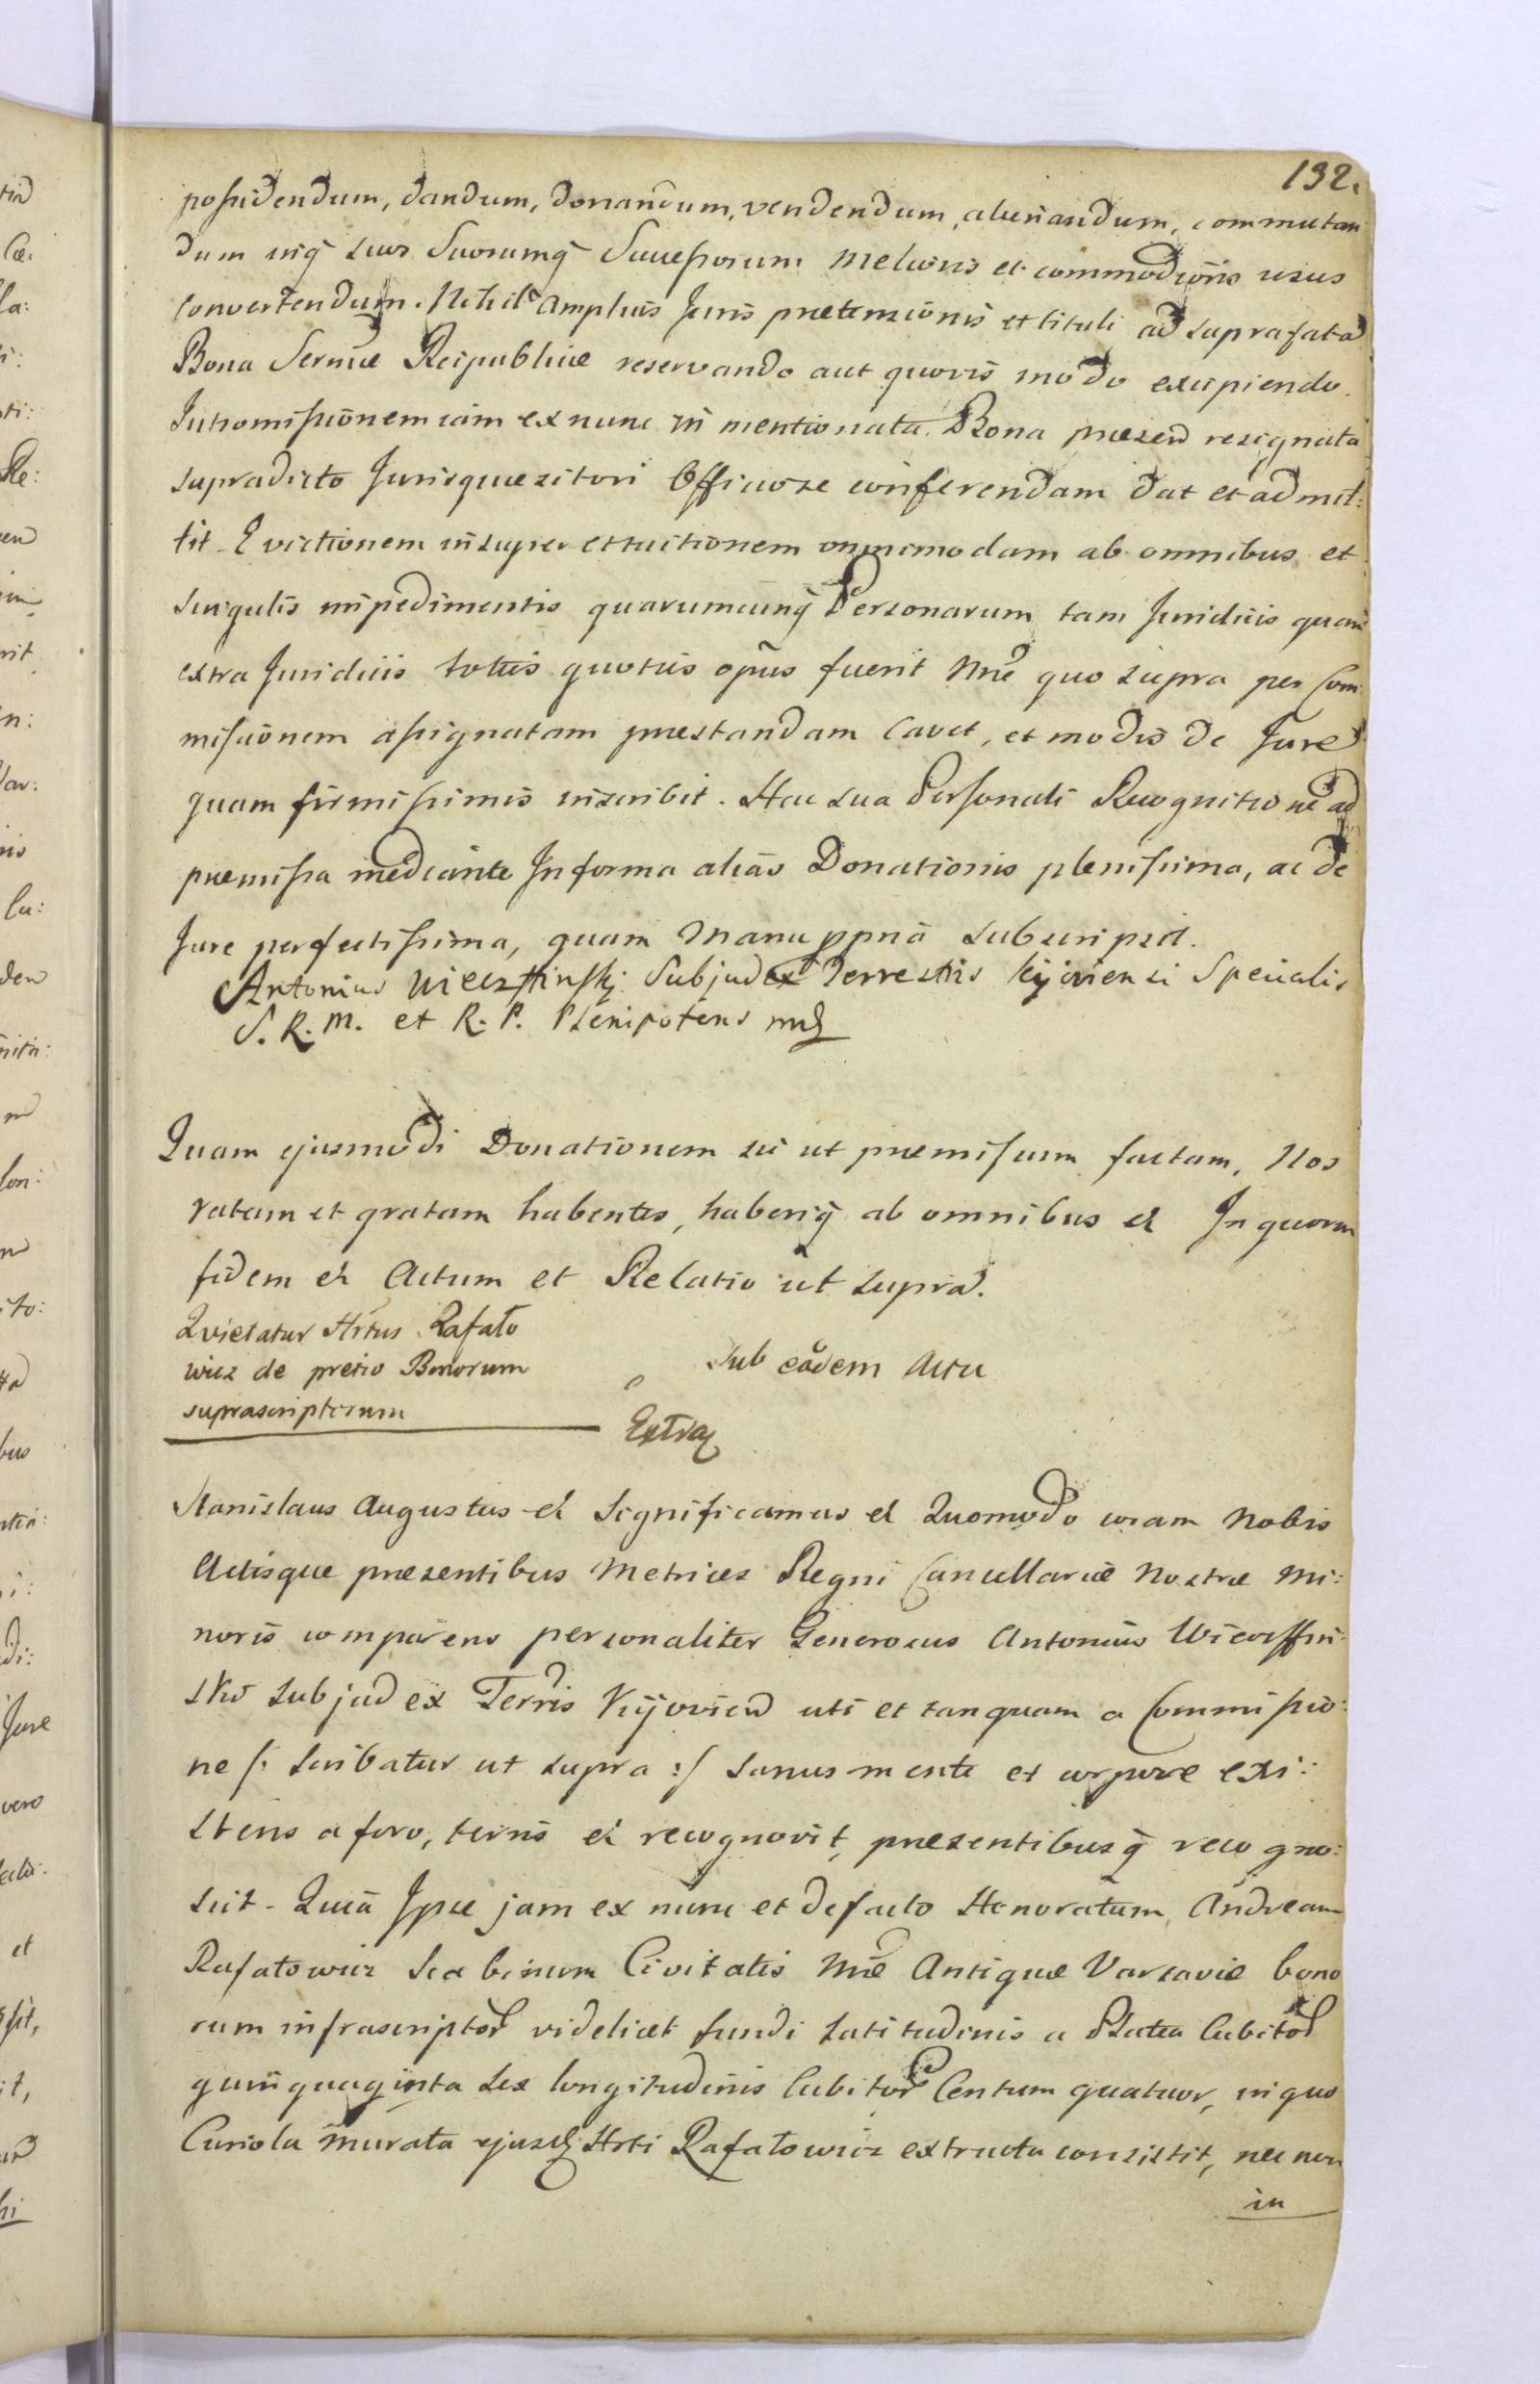 132.
possidendum, dandum, donandum, vendendum, alienandum, commutan
dum inq suos Suorumq Successorum meliōris et commodiōris usus
convertendum. Nihil amplius Juris praetensionis et tituli ad suprafata
Bona Sermae Reipublicae reservando aut quovis modo excipiendo.
Intromissionem eam ex nunc in mentionata Bona praesen resignata
supradicto Jurisquaesitori Officiose conferendam dat et admit:
tit. Evictionem insuper et tuitionem omnimodam ab omnibus et
singulis impedimentis quarumcunq Personarum tam Juridicis quam
extra Juridicis toties quoties opus fuerit nne quo supra per Com:
missionem assignatam praestandam cavet, et modis de Jure
quam firmissimis inscribit. Hac sua Personali Recognitione ad
praemissa mediante In forma alias Donationis plenissima, ac de
Jure perfectissima, quam manu ppria subscripsit.
Antonius Subjudex Terrestris Kijoviensi Specialis
S. R. M. et R. P. Plenipotens mp
Quam ejusmodi Donationem sic ut praemissum factam, Nos
ratam et gratam habentes, haberiq ab omnibus et In quorum
fidem et Actum et Relatio ut supra.
Quietatur Hrtus Rafało
wicz de pretio Bonorum
suprascriptorum
Sub eadem Actu
Extrad
Stanislaus Augustus et Significamus et Quomodo coram Nobis
Actisque praesentibus Metrices Regni Cancellariae Nostrae Mi:
noris comparens personaliter Generosus Antonius
ski Subjudex Terris Kijovien uti et tanquam a Commissio:
ne /: scribatur ut supra :/ sanus mente et corpore exi:
stens a foro, terris et recognovit, praesentibusq recogno:
scit. Quia Ipse jam ex nunc et de facto Honoratum Andream
Rafałowicz Scabinum Civitatis nrae Antiquae Varsaviae bono
rum infrascriptor videlicet fundi latitudinis a Platea Cubitor
quinquaginta sex longitudinis Cubitor Centum quatuor, in quo
Curiola murata ejusd Hrti Rafałowicz extructa consistit, nec non
in